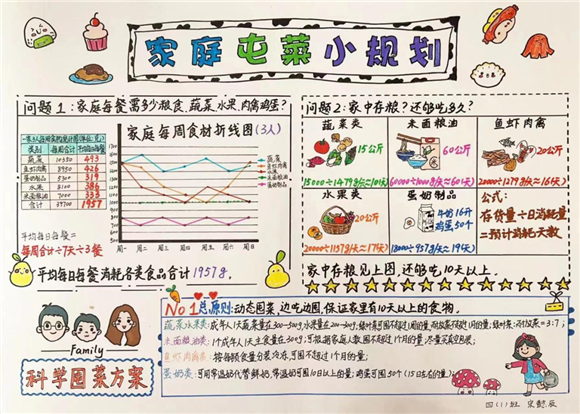 家庭屯菜小规划
问题1:家庭每餐需多少粮食、蔬菜、水果、肉禽鸡蛋?
类别 每周合计 平均每日每餐
蔬菜 10350 493
鱼虾肉禽 8950 426
蛋奶制品 319
水果 8100 386
米面粮油 7000 333
合计 1957
家庭每周食材折线图(3人)
蔬菜
鱼虾肉禽
蛋奶制品
水果
米面粮油
周一 周二 周三 周四 周五 周六 周日
平均每日每餐=
每周合计÷7天÷3餐
平均每日每餐消耗各类食品合计1957g.
问题2:家中存粮?还够吃多久?
蔬菜类
15公斤
15000÷1479g/天≈10(天)
米面粮油
60公斤
60000÷1000g/天≈60(天)
鱼虾肉禽
20公斤
20000÷1279g/天≈16(天)
水果类
20公斤
20000÷1157g/天≈17(天)
蛋奶制品
牛奶16斤
鸡蛋50个
18000÷957g/天≈19(天)
公式:
存货量÷日消耗量
=预计消耗天数
家中存粮见上图,还够吃10天以上.
Family
科学囤菜方案
No1总原则:动态囤菜,边吃边囤,保证家里有10天以上的食物.
蔬菜水果类:成年人1天蔬菜量在300-500g,水果量在200-350g,
米面粮油类:1个成年人1天主食量在300g,
鱼虾肉禽类:按每顿食量分装冷冻,可囤不超过1个月的量.
蛋奶类:可用常温奶代替鲜奶,常温奶可囤10日以上的量;鸡蛋可囤50个(15日左右的量).
四(1)班